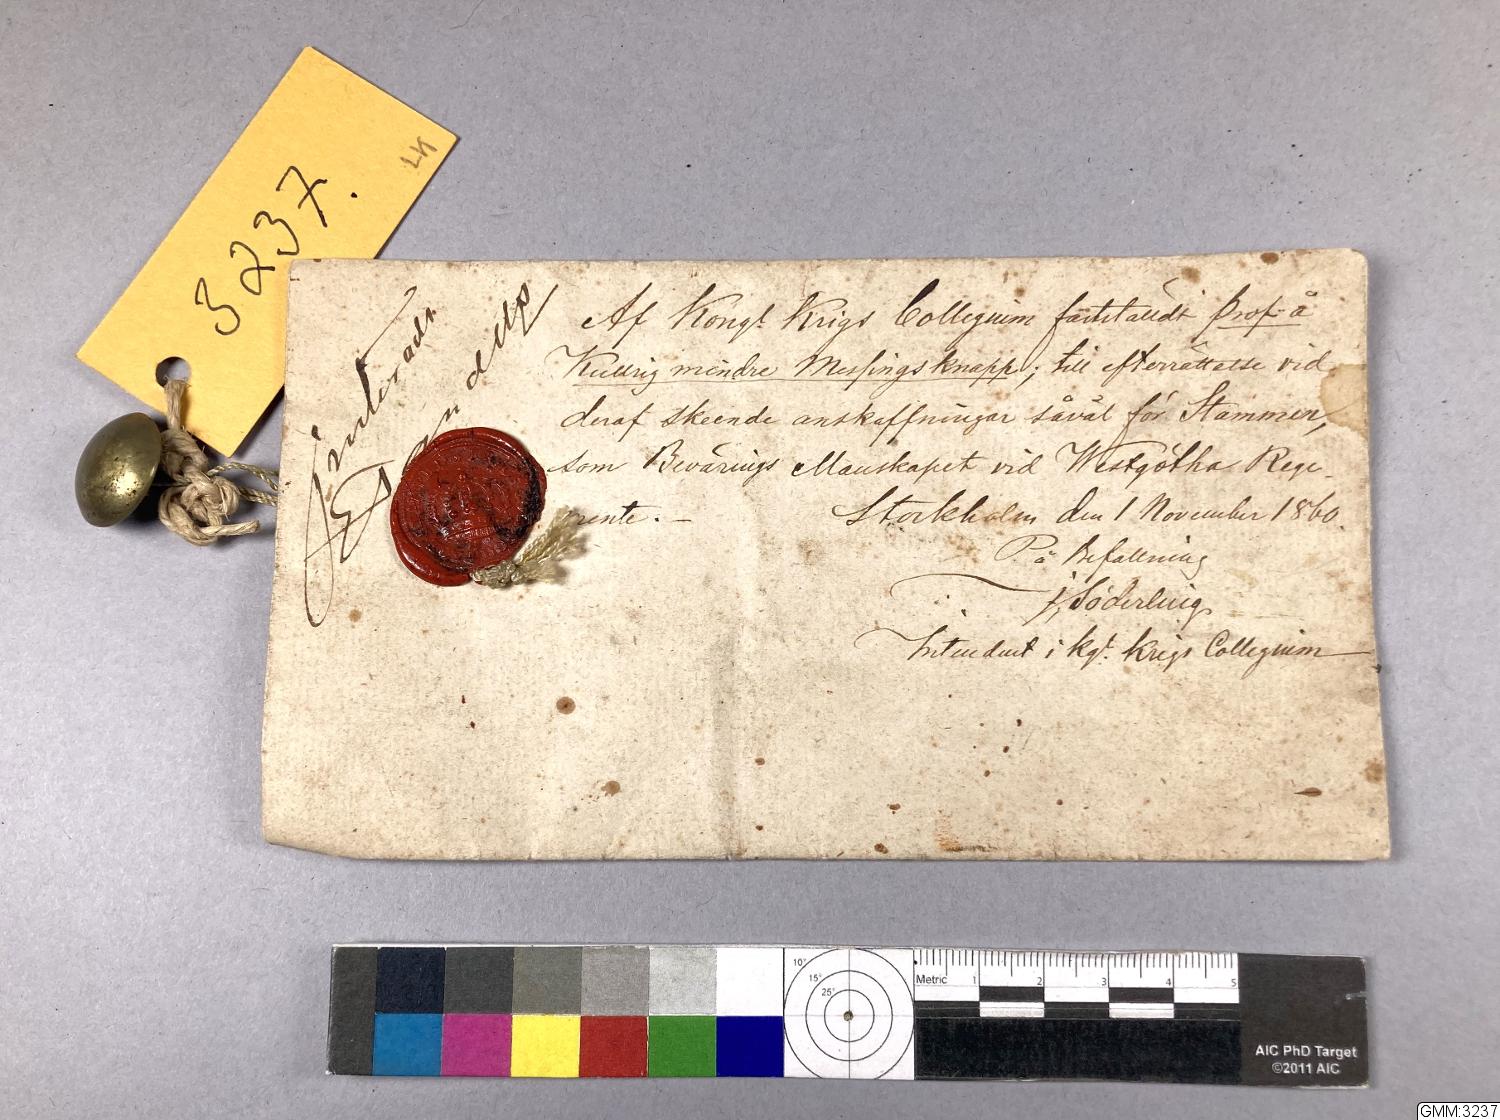 3237.
LK
Inlivradt
Af Kongl. Krigs Collegium fastställdt prof å
Kullrig mindre Messingsknapp; till efterrättelse vid
deraf skeende anskaffningar såväl för Stammen,
som Bevärings Manskapet vid Westgötha Rege-
mente. —
Stockholm den 1 November 1860.
På Befallning
J. Söderling
Intendent i Kgl. Krigs Collegium
10°
15°
25°
Metric 1 2 3 4 5
AIC PhD Target
©2011 AIC
GMM:3237